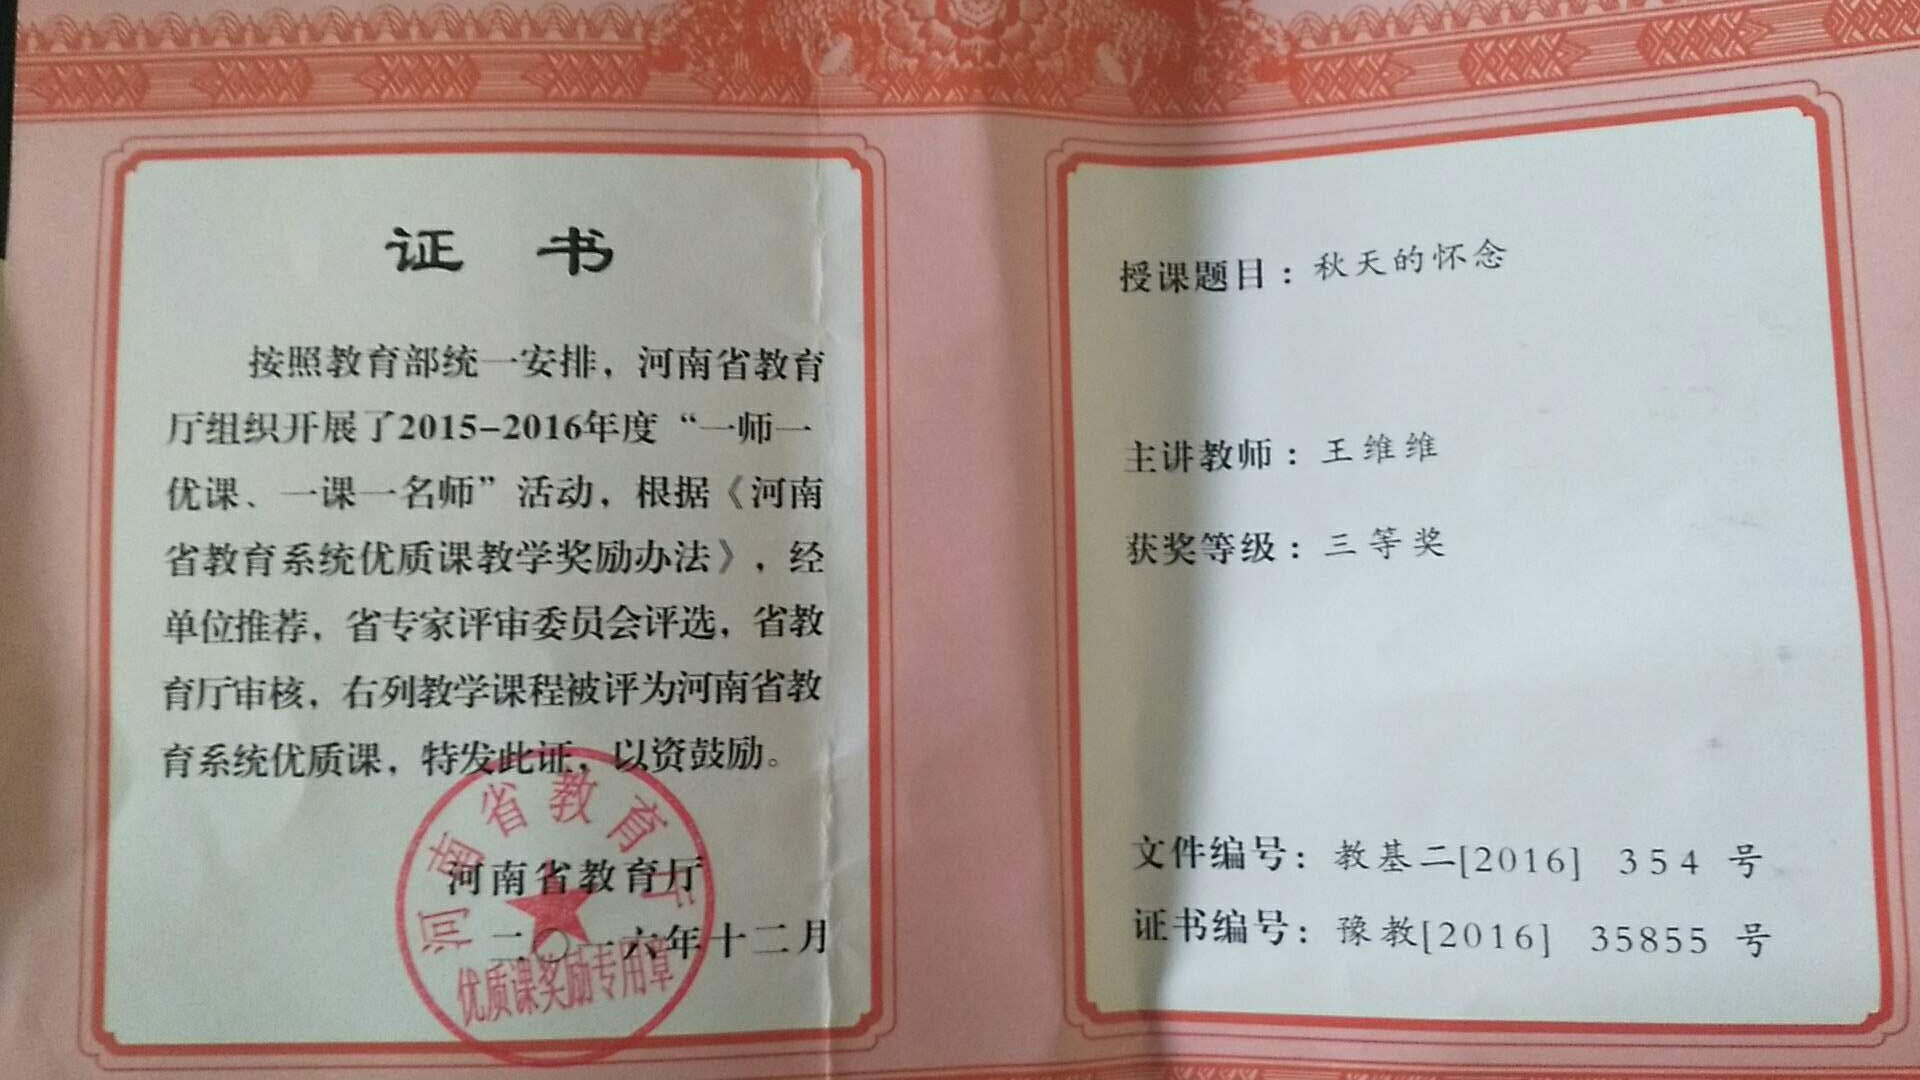 证 书
按照教育部统一安排，河南省教育
厅组织开展了2015-2016年度“一师一
优课、一课一名师”活动，根据《河南
省教育系统优质课教学奖励办法》，经
单位推荐，省专家评审委员会评选，省教
育厅审核，右列教学课程被评为河南省教
育系统优质课，特发此证，以资鼓励。
河南省教育厅
二〇一六年十二月
河南省教育厅
优质课奖励专用章
授课题目：秋天的怀念
主讲教师：王维维
获奖等级：三等奖
文件编号：教基二[2016] 354 号
证书编号：豫教[2016] 35855 号